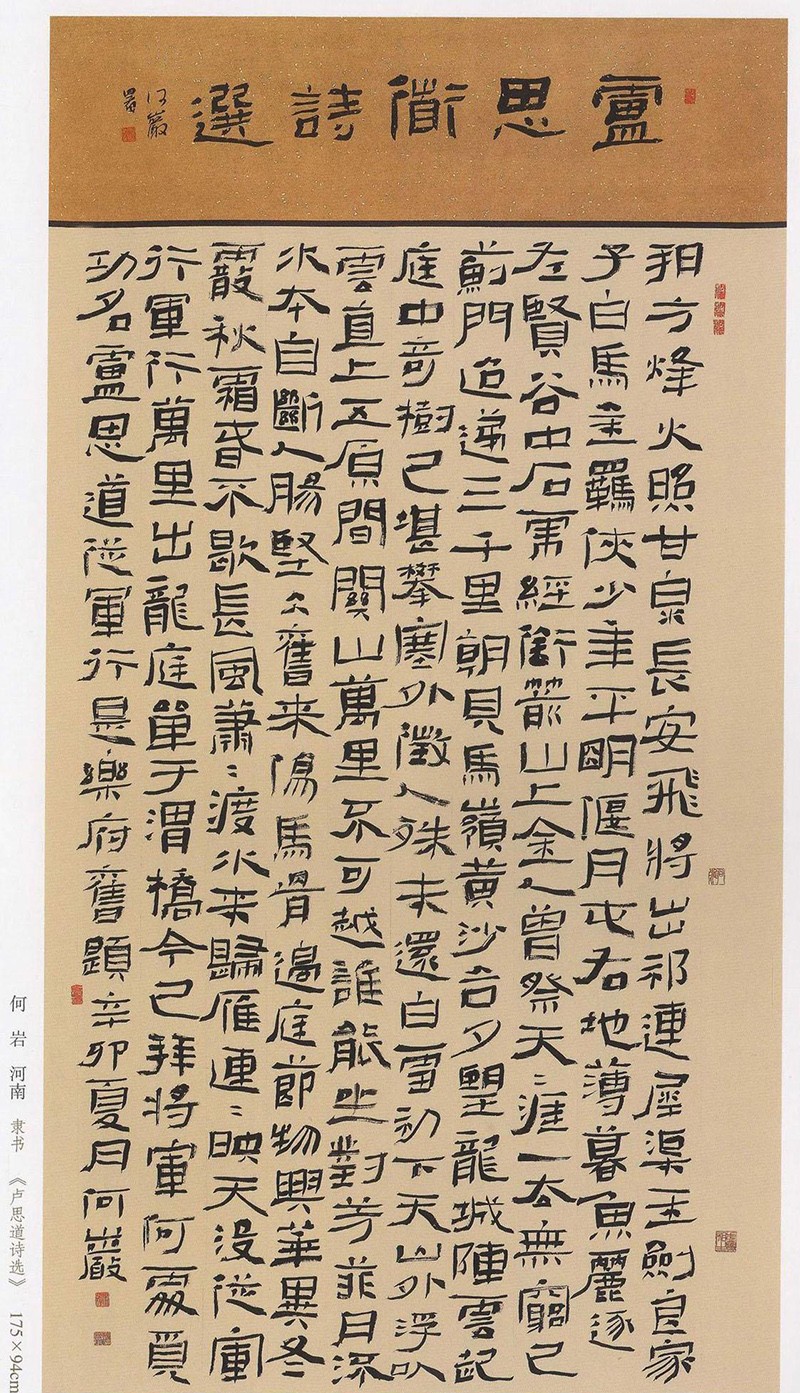 盧思衜詩選
何巖
朔方烽火照甘泉長安飛將出祁連犀渠玉劍良家
子白馬金羈俠少年平明偃月屯右地薄暮魚麗逐
左賢谷中石虎經銜箭山上金人曾祭天〻涯一去無窮已
薊門迢遞三千里朝見馬嶺黃沙合夕望龍城陣雲起
庭中奇樹已堪攀塞外徵人殊未還白雪初下天山外浮
雲直上五原間關山萬里不可越誰能坐對芳菲月流
水本自斷人腸堅冰舊來傷馬骨邊庭節物與華異冬
霰秋霜春不歇長風蕭〻渡水來歸雁連〻映天沒從軍
行軍行萬里出龍庭單于渭橋今已拜將軍何處覓
功名盧思道從軍行是樂府舊題辛卯夏月何巖
何岩 河南 隶书 《卢思道诗选》 175×94cm